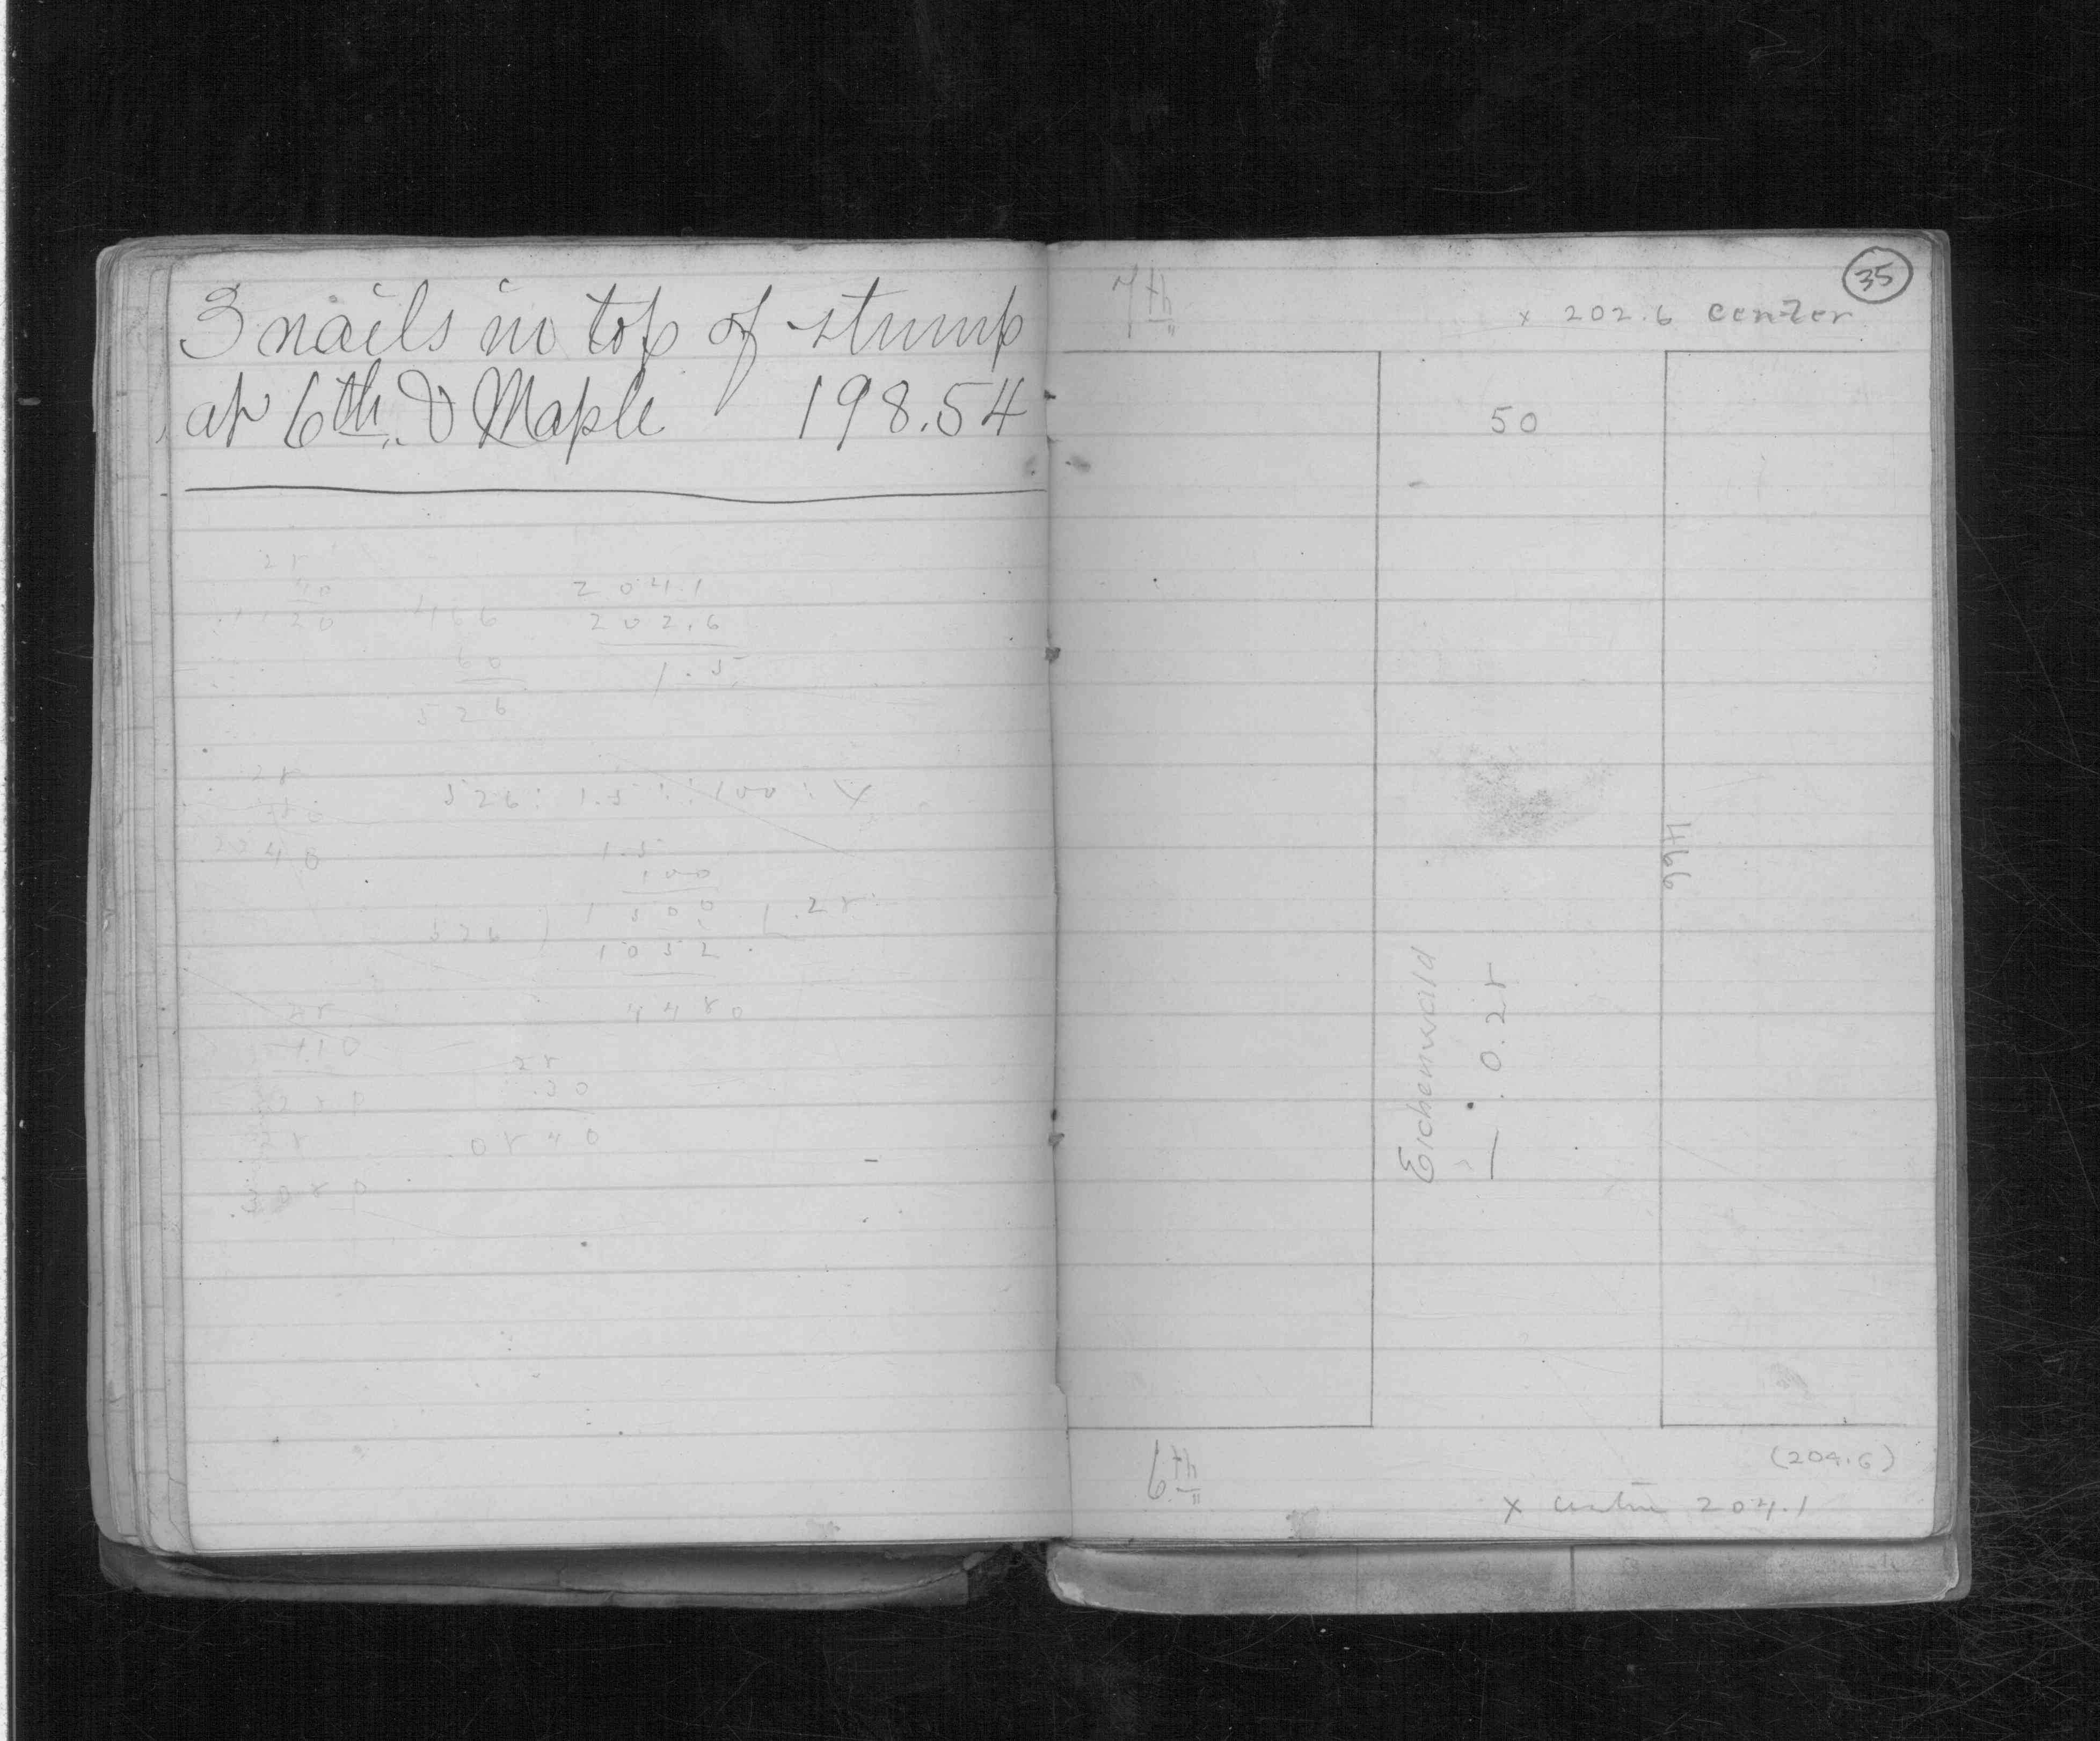 3 nails in top of stump
at 6th & Maple 198.54
28
40
1120
466
60
526
204.1
202.6
1.5
28
2040
526 : 1.5 :: 100 : X
1.5
100
526 ) 1500 | .28
1052
4480
28
110
28
28
.30
0840
35
7th
x 202.6 center
50
466
Eichenwald
— 0.28
6th
(204.6)
x center 204.1